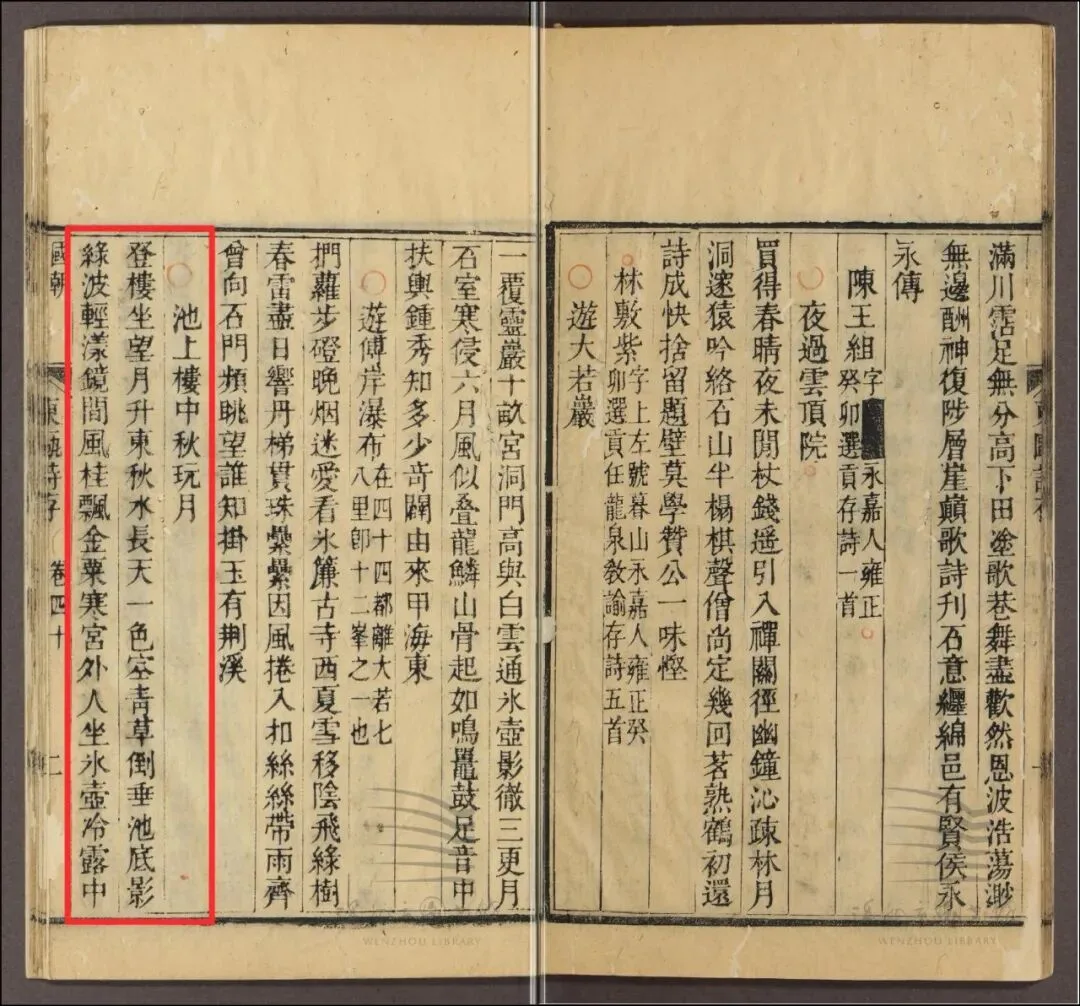 滿川霑足無分高下田塗歌巷舞盡歡然恩波浩蕩渺
無邊酬神復陟層崖巔歌詩刊石意纏綿邑有賢侯永
永傳
陳王組字 永嘉人雍正癸卯選貢存詩一首
夜過雲頂院
買得春晴夜未閒杖錢遥引入禪關徑幽鐘沁疎林月
洞邃猿吟絡石山半榻棋聲僧尚定幾回茗熟鶴初還
詩成快捨留題壁莫學贊公一味慳
林敷紫字上左號暮山永嘉人雍正癸卯選貢任龍泉敎諭存詩五首
遊大若巖
一覆靈巖十畝宮洞門高與白雲通氷壺影徹三更月
石室寒侵六月風似叠龍鱗山骨起如鳴鼉鼓足音中
扶輿鍾秀知多少竒闢由來甲海東
遊傅岸瀑布在四十四都離大若七八里卽十二峯之一也
捫蘿步磴晚烟迷愛看氷簾古寺西夏雪移陰飛綠樹
春雷盡日響丹梯貫珠纍纍因風捲入扣絲絲帶雨齊
曾向石門頻眺望誰知掛玉有荆溪
池上樓中秋玩月
登樓坐望月升東秋水長天一色空青草倒垂池底影
綠波輕漾鏡間風桂飄金粟寒宮外人坐氷壺冷露中
國朝
東甌詩存 卷四十 二
WENZHOU LIBRARY
WENZHOU LIBRARY